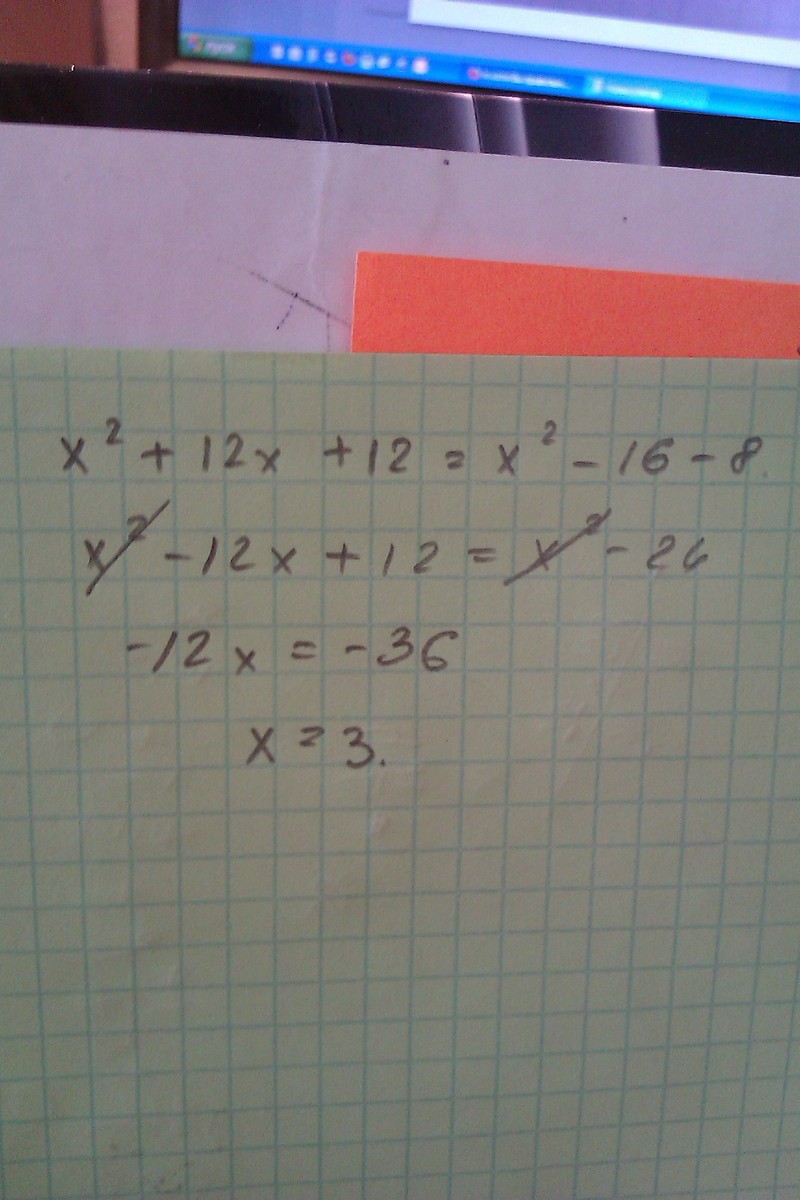 x² + 12x + 12 = x² - 16 - 8
x² - 12x + 12 = x² - 24
-12x = -36
x = 3.